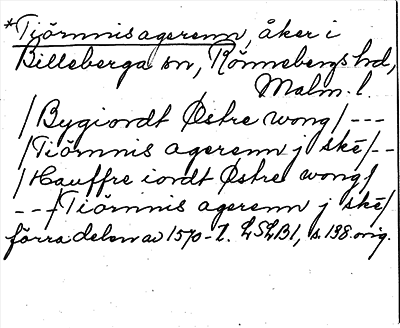 *Tiörnnisagerenn, åker i
Billeberga sn, Rönnebergs hd,
Malm. l.
/Bygiordt Østre wong/ ---
/Tiörnnis agerenn j skē/--
/Hauffre iordt Østre wong/
---/Tiörnnis agerenn j skē/
förra delen av 1570-t. LSLB1, s. 198 orig.